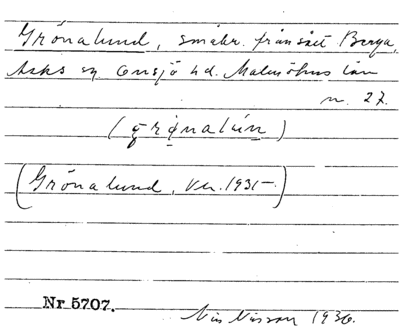 Grönalund, småbr. frånsåt Berga,
Asks sn Onsjö hd. Malmöhus län
n. 27.
(grǫ̈nalún)
(Grönalund, Ver. 1931–.)
Nr 5707.
Nils Nilsson 1936.